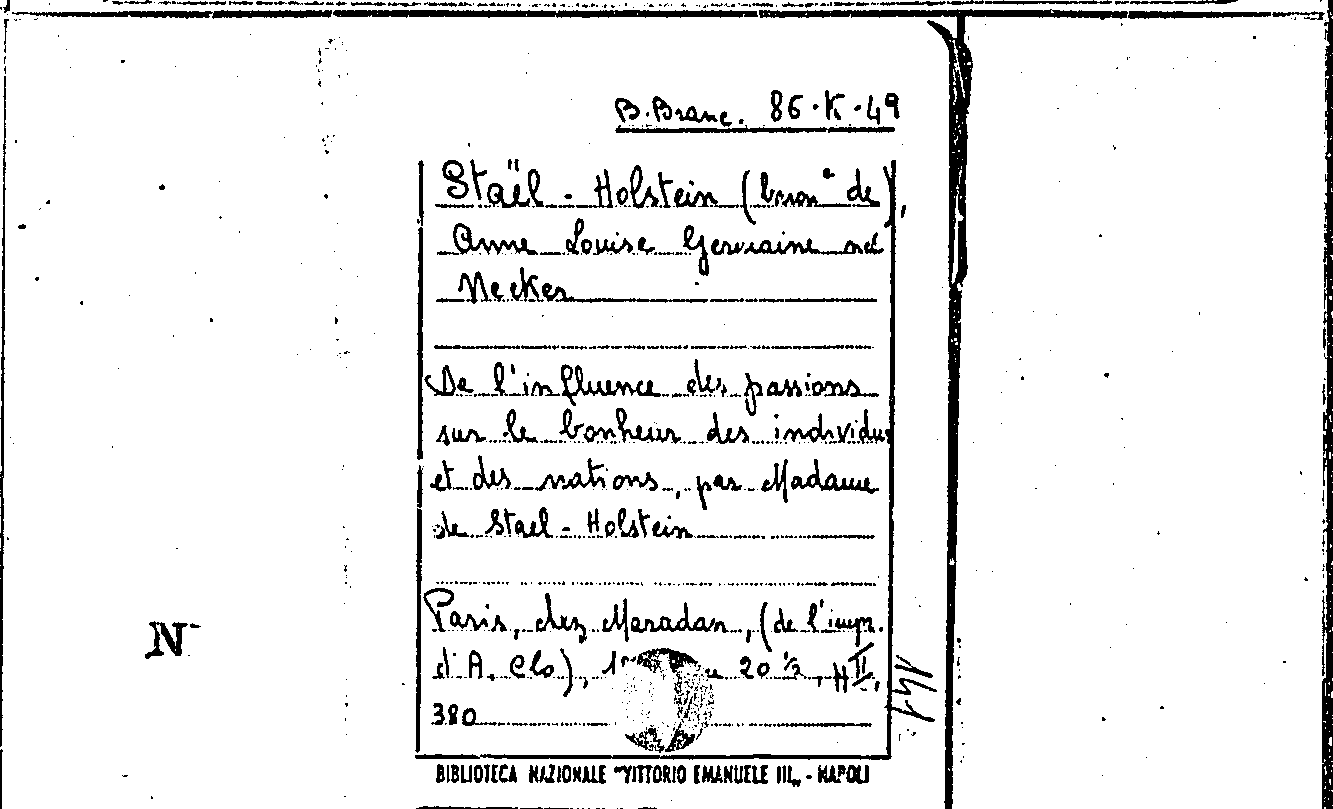 B. Branc. 86-K-49
Staël - Holstein (baronᵉ de),
Anne Louise Germaine née
Necker
De l'influence des passions
sur le bonheur des individus
et des nations, par Madame
de Stael - Holstein
Paris, chez Maradan, (de l'impr.
d'A. Clo), 20 ½, II,
380
N
BIBLIOTECA NAZIONALE "VITTORIO EMANUELE III„ - NAPOLI